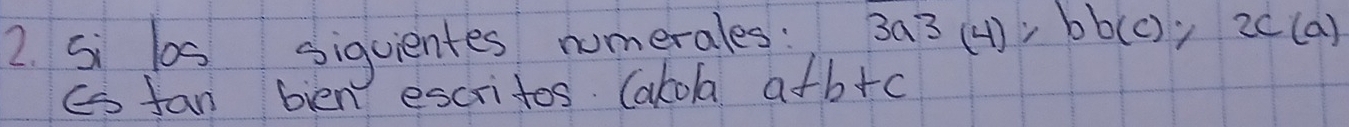 2. Si los siguientes numerales: 3a3 (4); bb(c); 2c(a)
Es tan bien escritos. Calcula a+b+c